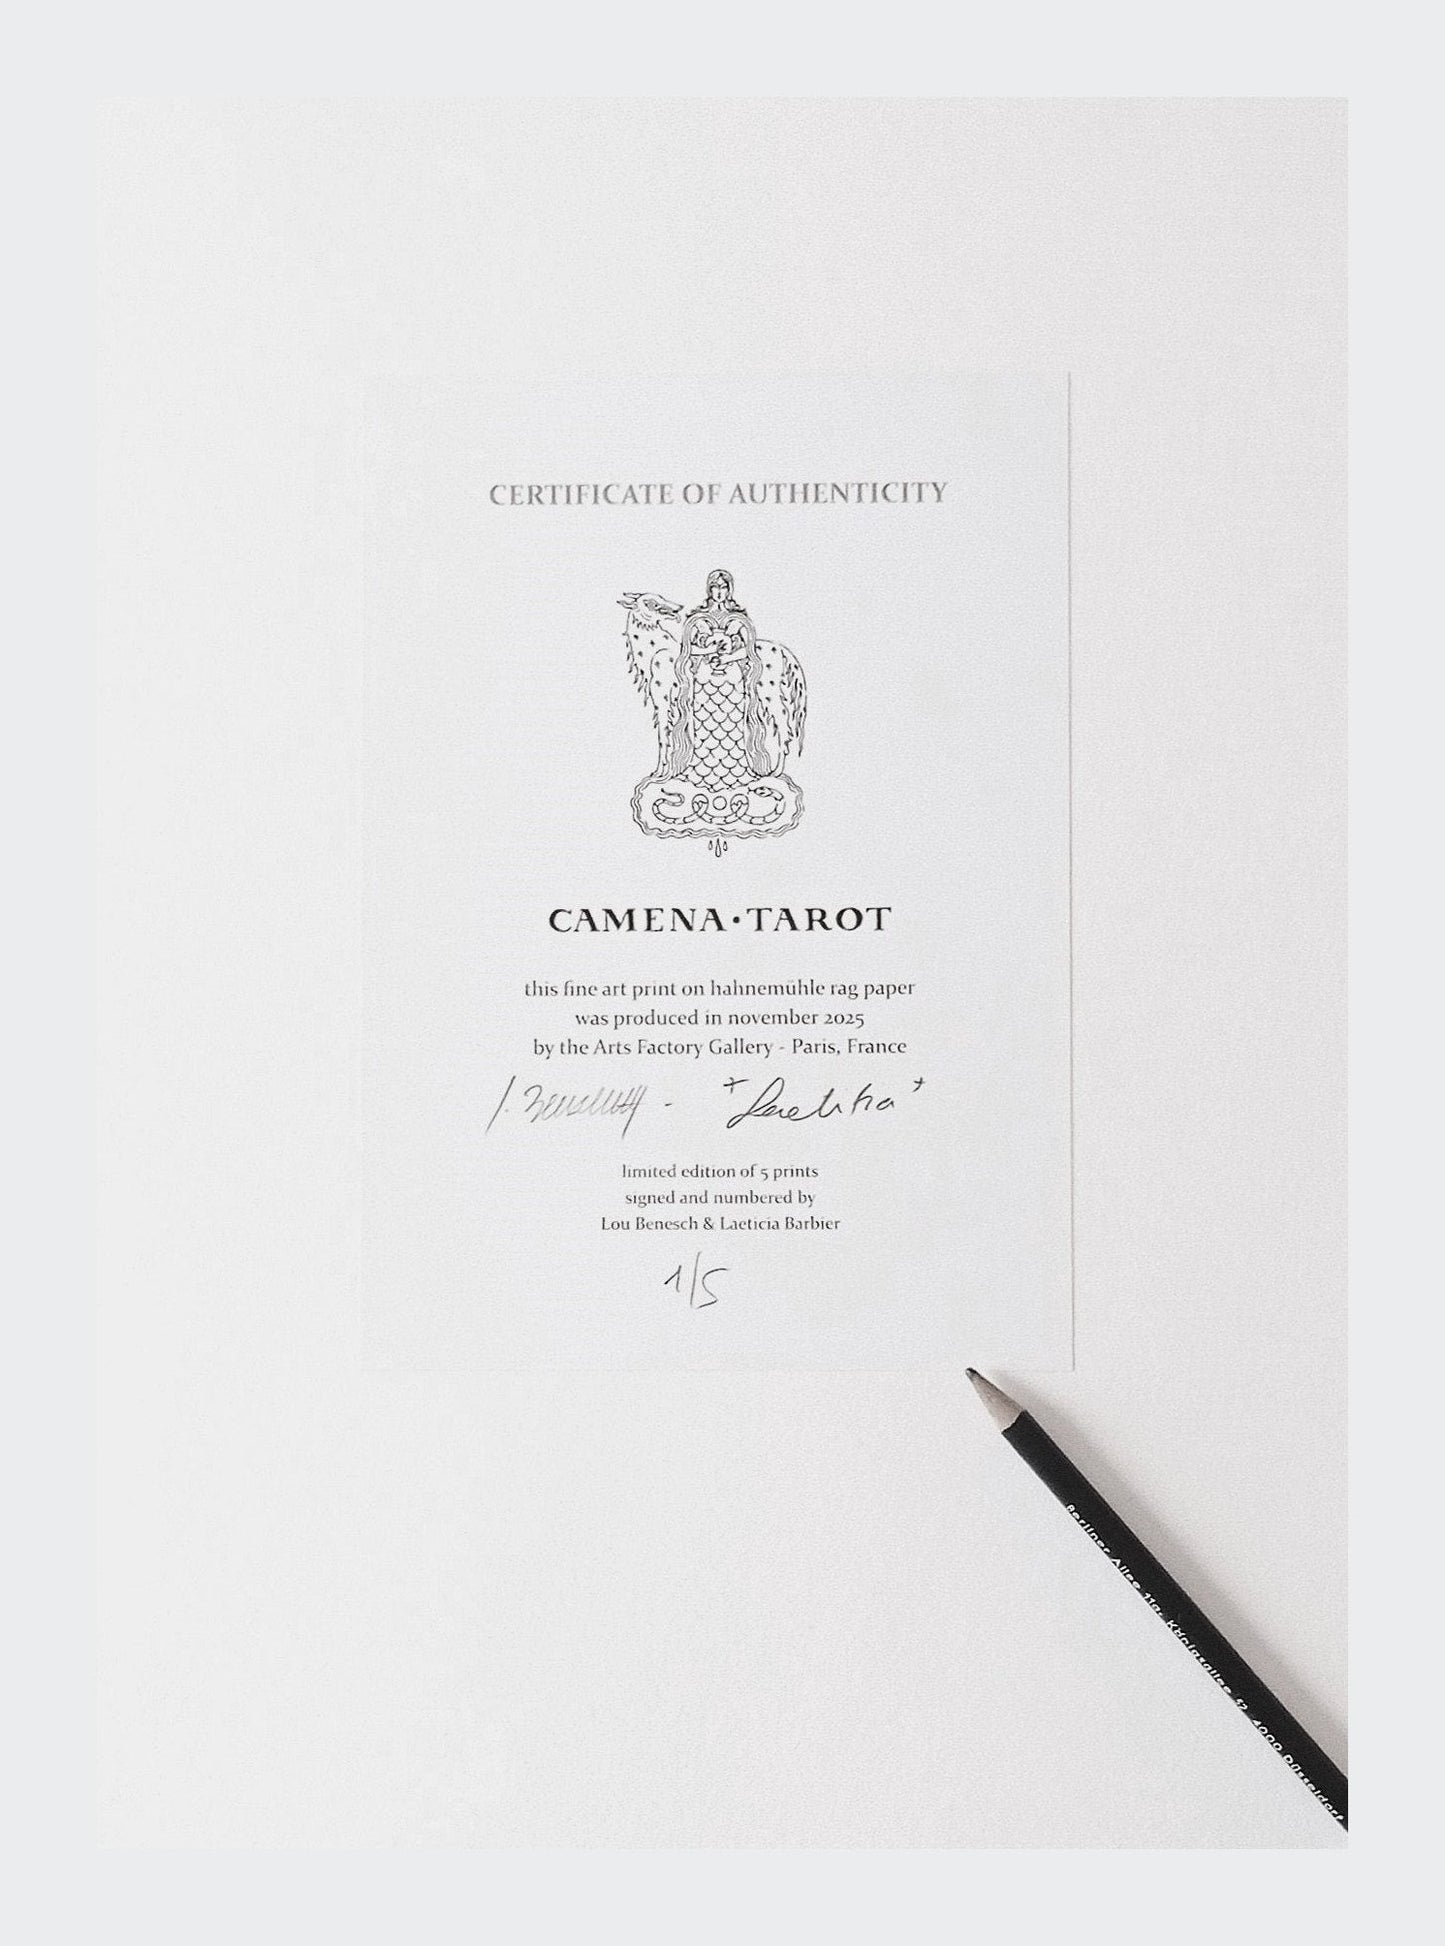 CERTIFICATE OF AUTHENTICITY
CAMENA·TAROT
this fine art print on hahnemühle rag paper
was produced in november 2025
by the Arts Factory Gallery - Paris, France
Laetitia
limited edition of 5 prints
signed and numbered by
Lou Benesch & Laeticia Barbier
1/5
Berliner Allee 11a, Königsallee 52, 4000 Düsseldorf